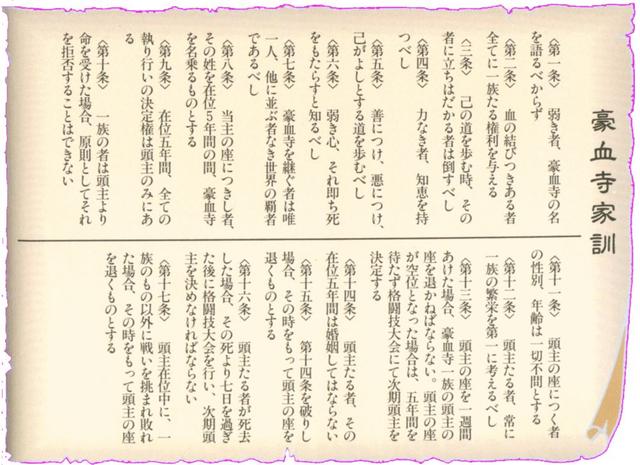 豪血寺家訓
〈第一条〉　弱き者、豪血寺の名
を語るべからず
〈第二条〉　血の結びつきある者
全てに一族たる権利を与える
〈三条〉　己の道を歩む時、その
者に立ちはだかる者は倒すべし
〈第四条〉　力なき者、知恵を持
つべし
〈第五条〉　善につけ、悪につけ、
己がよしとする道を歩むべし
〈第六条〉　弱き心、それ即ち死
をもたらすと知るべし
〈第七条〉　豪血寺を継ぐ者は唯
一人、他に並ぶ者なき世界の覇者
であるべし
〈第八条〉　当主の座につきし者、
その姓を在位5年間の間、豪血寺
を名乗るものとする
〈第九条〉　在位五年間、全ての
執り行いの決定権は頭主のみにあ
る
〈第十条〉　一族の者は頭主より
命を受けた場合、原則としてそれ
を拒否することはできない
〈第十一条〉　頭主の座につく者
の性別、年齢は一切不問とする
〈第十二条〉　頭主たる者、常に
一族の繁栄を第一に考えるべし
〈第十三条〉　頭主の座を一週間
あけた場合、豪血寺一族の頭主の
座を退かねばならない。頭主の座
が空位となった場合は、五年間を
待たず格闘技大会にて次期頭主を
決定する
〈第十四条〉　頭主たる者、その
在位五年間は婚姻してはならない
〈第十五条〉　第十四条を破りし
場合、その時をもって頭主の座を
退くものとする
〈第十六条〉　頭主たる者が死去
した場合、その死より七日を過ぎ
た後に格闘技大会を行い、次期頭
主を決めなければならない
〈第十七条〉　頭主在位中に、一
族のもの以外に戦いを挑まれ敗れ
た場合、その時をもって頭主の座
を退くものとする